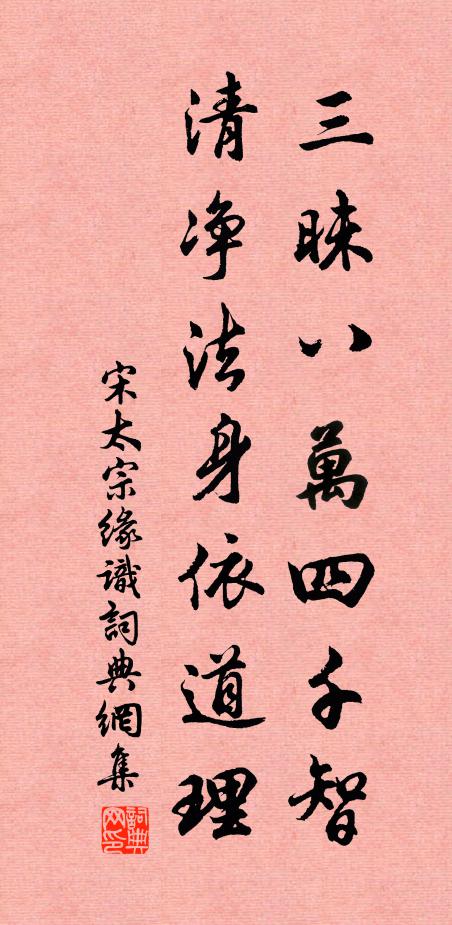 三昧八萬四千智
清净法身依道理
宋太宗緣識詞典網集
詞典网印